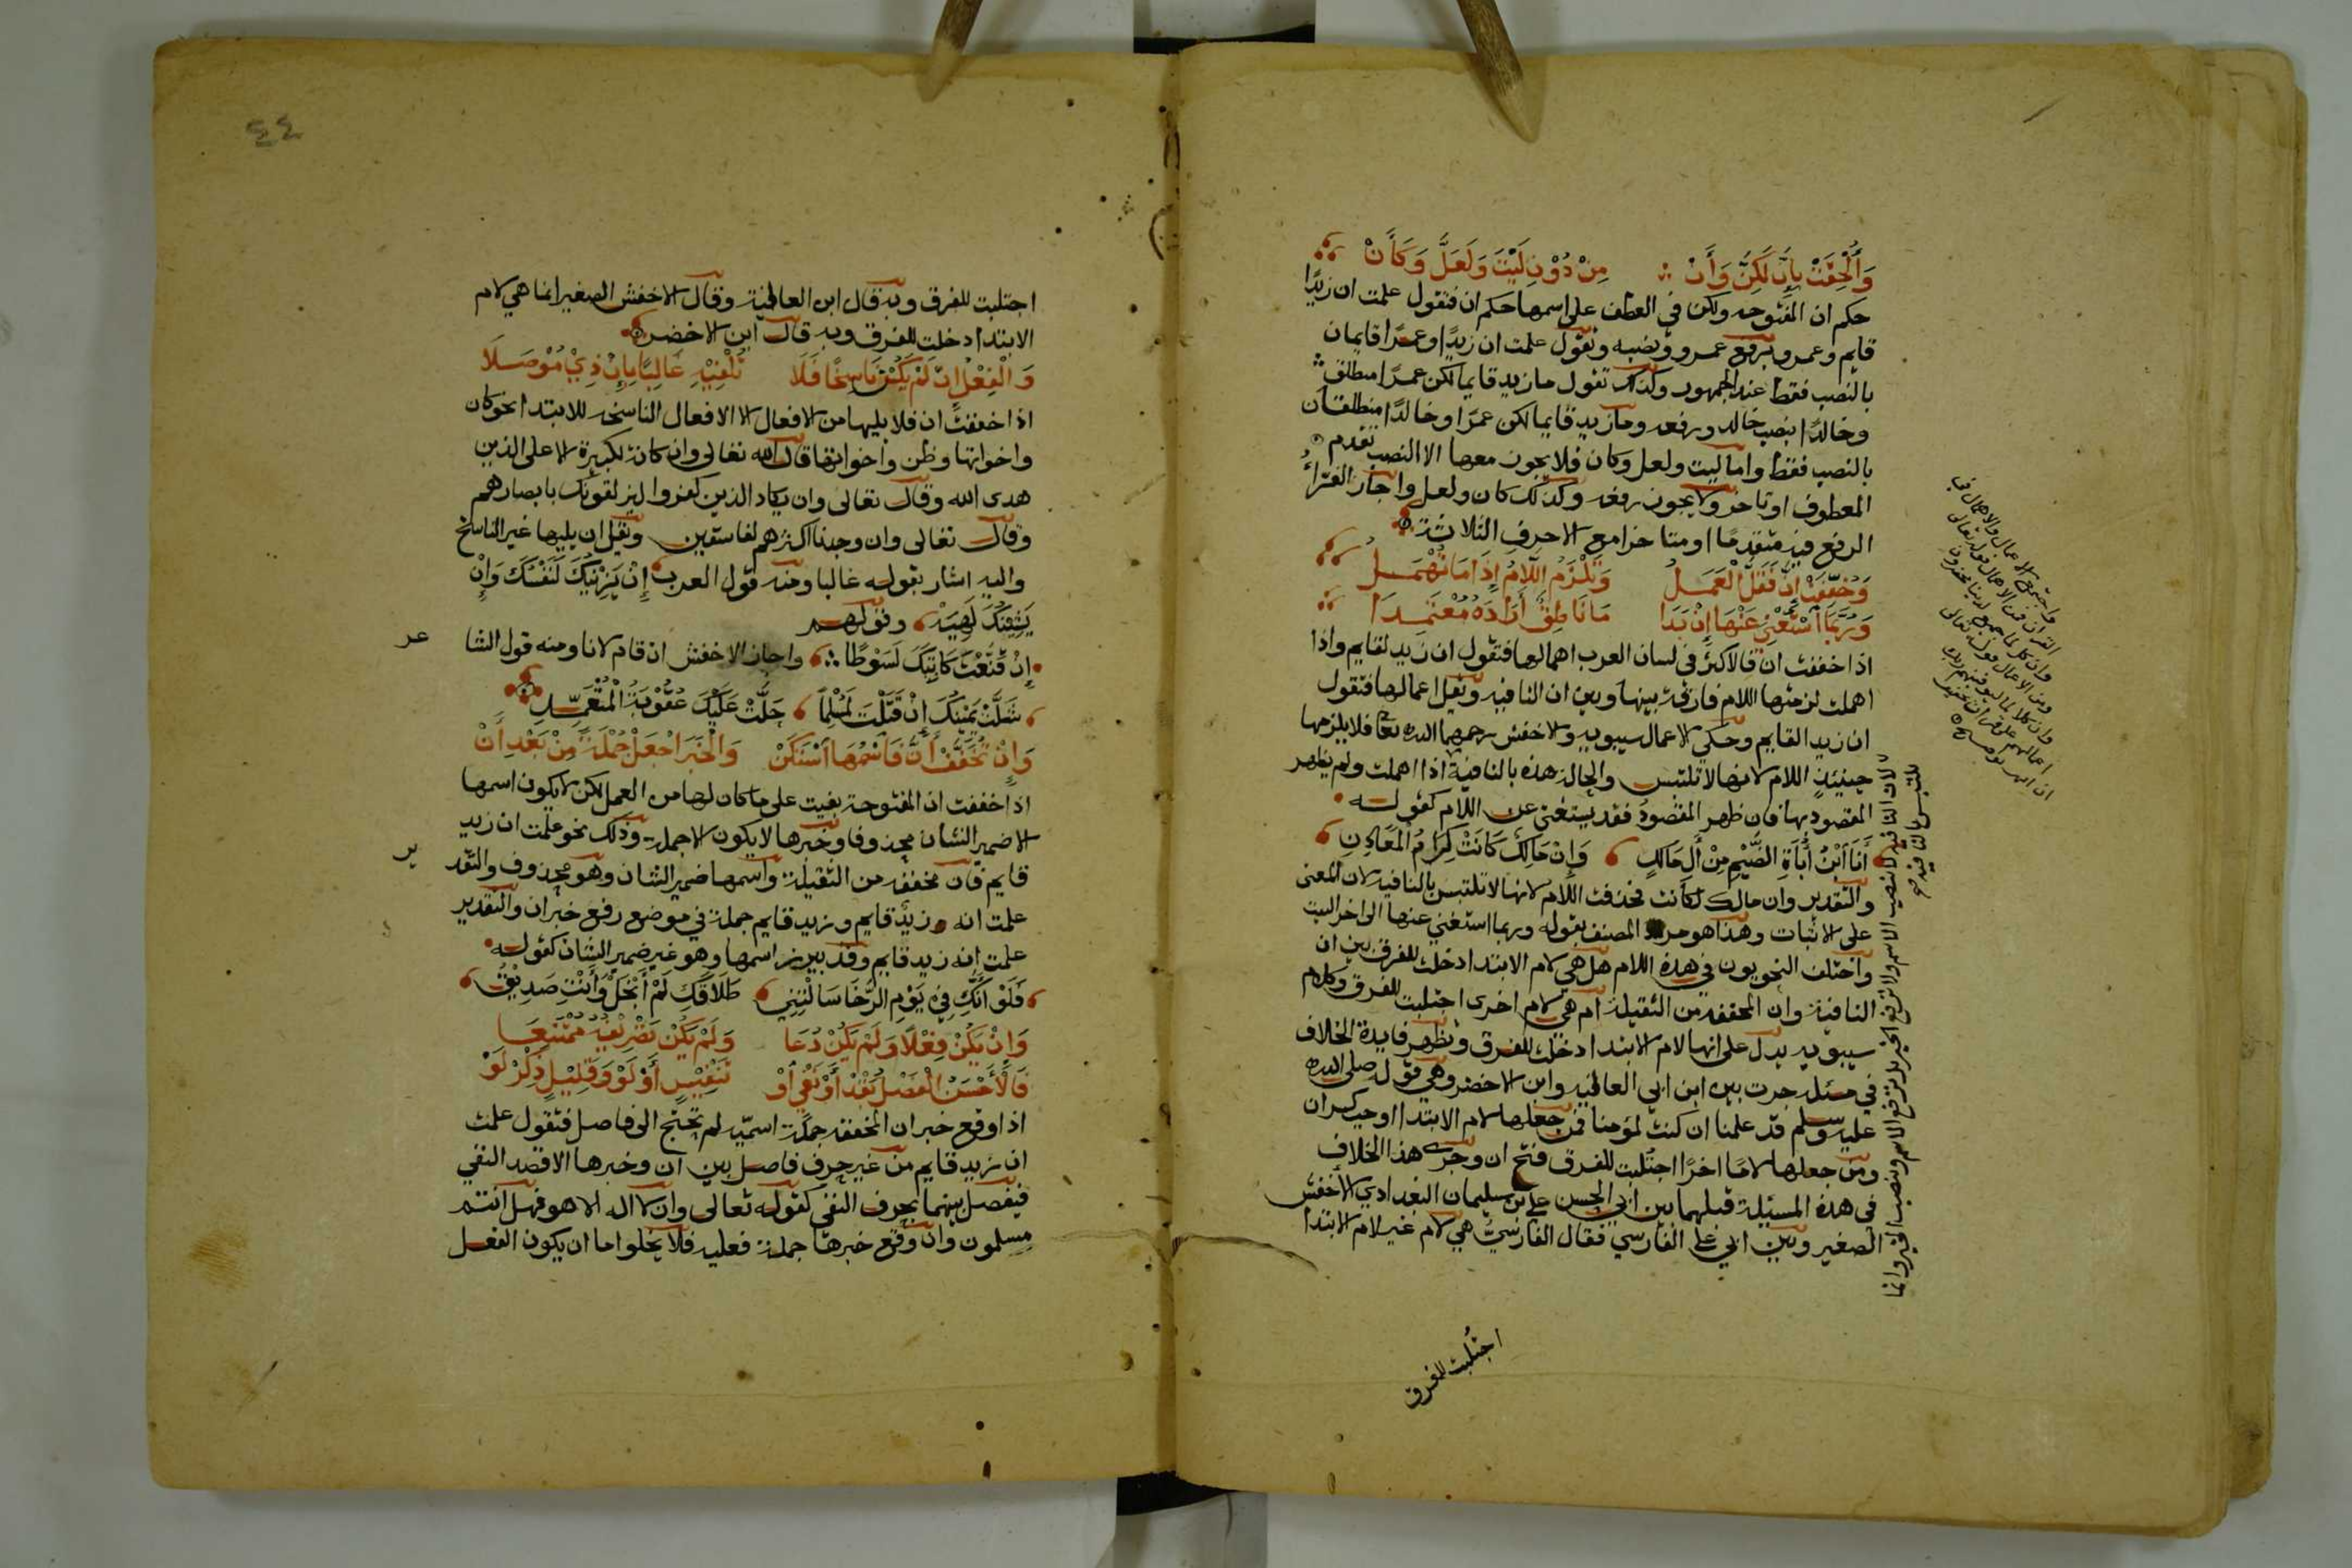 وَأُلْحِقَتْ بِإِنَّ لَكِنَّ وَأَنْ ∴ مِنْ دُوْنِ لَيْتَ وَلَعَلَّ وَكَأَنْ
حكم ان المفتوحه ولكن في العطف على اسمها حكم ان فتقول علمت ان زيدًا
قايم وعمرو برفع عمرو ونصبه وتقول علمت ان زيدًا وعمرًا قايمان
بالنصب فقط عند الجمهور وكذلك تقول ما زيد قايما لكن عمرًا منطلق
وخالدًا بنصب خالد ورفعه وما زيد قايما لكن عمرًا وخالدًا منطلقان
بالنصب فقط واما ليت ولعل وكان فلا يجوز معها الا النصب تقدم
المعطوف او تاخر ولا يجوز رفعه وكذلك كان ولعل واجاز الفرّاءُ
الرفع فيه متقدمًا او متاخرا مع الاحرف الثلاثة
وَخُفِّفَتْ إِنَّ فَقَلَّ الْعَمَلُ وَتَلْزَمُ اللَّامُ إِذَا مَا تُهْمَــلُ
وَرُبَّمَا اسْتُغْنِيَ عَنْهَا إِنْ بَدَا مَا نَاطِقٌ أَرَادَهُ مُعْتَمِــدَا
اذا خففت ان فالاكثر في لسان العرب اهمالها فتقول ان زيد لقايم واذا
اهملت لزمتها اللام فارقة بينها وبين ان النافيه وتقل اعمالها فتقول
ان زيدا لقايم وحكي الاعمال سيبويه والاخفش رحمهما الله تعا فلا يلزمها
حينيذٍ اللام لانها لا تلتبس والحالة هذه بالنافية اذا اهملت ولم يظهر
المقصود بها فان ظهر المقصودُ فقد يستغنى عن اللام كقوله
أَنَا ابْنُ أُبَاةِ الضَّيْمِ مِنْ أَلِ مَالِكٍ وَإِنْ مَالِكٌ كَانَتْ كِرَامُ الْمَعَادِنِ
والتقدير وان مالك لكانت فحذفت اللام لانها لا تلتبس بالنافيه لان المعنى
على الاثبات وهذا هو مراد المصنف بقوله وربما استغني عنها الى اخر البيت
واختلف النحويون في هذه اللام هل هي لام الابتدا دخلت للفرق بين ان
النافية وان المخففه من الثقيلة ام هي لام اخرى اجتلبت للفرق وكلام
سيبويه يدل على انها لام الابتدا دخلت للفرق وتظهر فايدة الخلاف
في مسئله جرت بين ابن ابي العافيه وابن الاخضر وهي قوله صلى الله
عليه وسلم قد علمنا ان كنت لمؤمنا فمن جعلها لام الابتدا اوجب كسر ان
ومن جعلها لامًا اخرًا اجتُلبت للفرق فتح ان وجرى هذا الخلاف
في هذه المسئلة قبلهما بين ابي الحسن علي بن سليمان البغدادي الأخفش
الصغير وبين ابي علي الفارسي فقال الفارسيُّ هي لام غير لام الابتدا
اجتُلبت للفرق
لان النافيه لا تنصب الاسم وترفع الخبر بل ترفع الاسم وتنصب الخبر وانما
تلتبس بالنافيه
٤٤
اجتلبت للفرق وبه قال ابن العافية وقال الاخفش الصغير انما هي لام
الابتدا دخلت للفرق وبه قال ابن الاخضر
وَالْفِعْلُ إِنْ لَمْ يَكُنْ نَاسِخًا فَلَا تُلْفِيْهِ غَالِبًا بِإِنْ ذِيْ مُوْصَــلَا
اذا خففت ان فلا يليها من الافعال الا الافعال الناسخه للابتدا نحو كان
واخواتها وظن واخواتها قال الله تعالى وان كانت لكبيرة الا على الذين
هدى الله وقال تعالى وان يكاد الذين كفروا ليزلقونك بابصارهم
وقال تعالى وان وجدنا اكثرهم لفاسقين وتقل ان يليها غير الناسخ
واليه اشار بقوله غالبا ومنه قول العرب إِنْ يَزِيْنُكَ لَنَفْسُكَ وَإِنْ
يَشِيْنُكَ لَهِيَهْ وقولهــم
إِنْ قَنَّعْتَ كَاتِبَكَ لَسَوْطًا ∴ واجاز الاخفش ان قام لانا ومنه قول الشا
عر
شَلَّتْ يَمِيْنُكَ إِنْ قَتَلْتَ لَمُسْلِمًا حَلَّتْ عَلَيْكَ عُقُوْبَةُ الْمُتَعَمِّــدِ
وَإِنْ تُخَفَّفْ أَنَّ فَاسْمُهَا اسْتَكَنْ وَالْخَبَرَ اجْعَلْ جُمْلَةً مِنْ بَعْدِ أَنْ
اذا خففت ان المفتوحة بقيت على ما كان لها من العمل لكن لا يكون اسمها
الا ضمير الشان محذوفا وخبرها لا يكون الا جملة وذلك نحو علمت ان زيد
قايم فان مخففه من الثقيلة واسمها ضمير الشان وهو محذوف والتقد
ير
علمت انه زيدٌ قايم وزيد قايم جملة في موضع رفع خبر ان والتقدير
علمت انه زيد قايم وقد يبرز اسمها وهو غير ضمير الشان كقوله
فَلَوْ أَنَّكِ فِيْ يَوْمِ الرَّخَا سَالْتِنِيْ طَلَاقَكِ لَمْ أَبْخَلْ وَأَنْتِ صَدِيْقُ
وَإِنْ يَكُنْ فِعْلًا وَلَمْ يَكُنْ دُعَا وَلَمْ يَكُنْ تَصْرِيْفُهُ مُمْتَنِعَــا
فَالْأَحْسَنُ الْفَصْلُ بِقَدْ أَوْ نَفْيٍ أَوْ تَنْفِيْسٍ أَوْ لَوْ وَقَلِيْلٌ ذِكْرُ لَوْ
اذا وقع خبر ان المخففه جملة اسميّه لم تحتج الى فاصل فتقول علمت
ان زيد قايم من غير حرف فاصل بين ان وخبرها الا قصد النفي
فيفصل بينهما بحرف النفي كقوله تعالى وان لا اله الا هو فهل انتم
مسلمون وان وقع خبرها جملة فعليه فلا يخلوا اما ان يكون الفعل